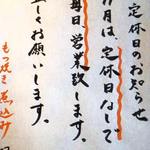 定休日のお知らせ
月は、定休日なしで
毎日、営業致します。
宜しくお願いします。
もつ焼き